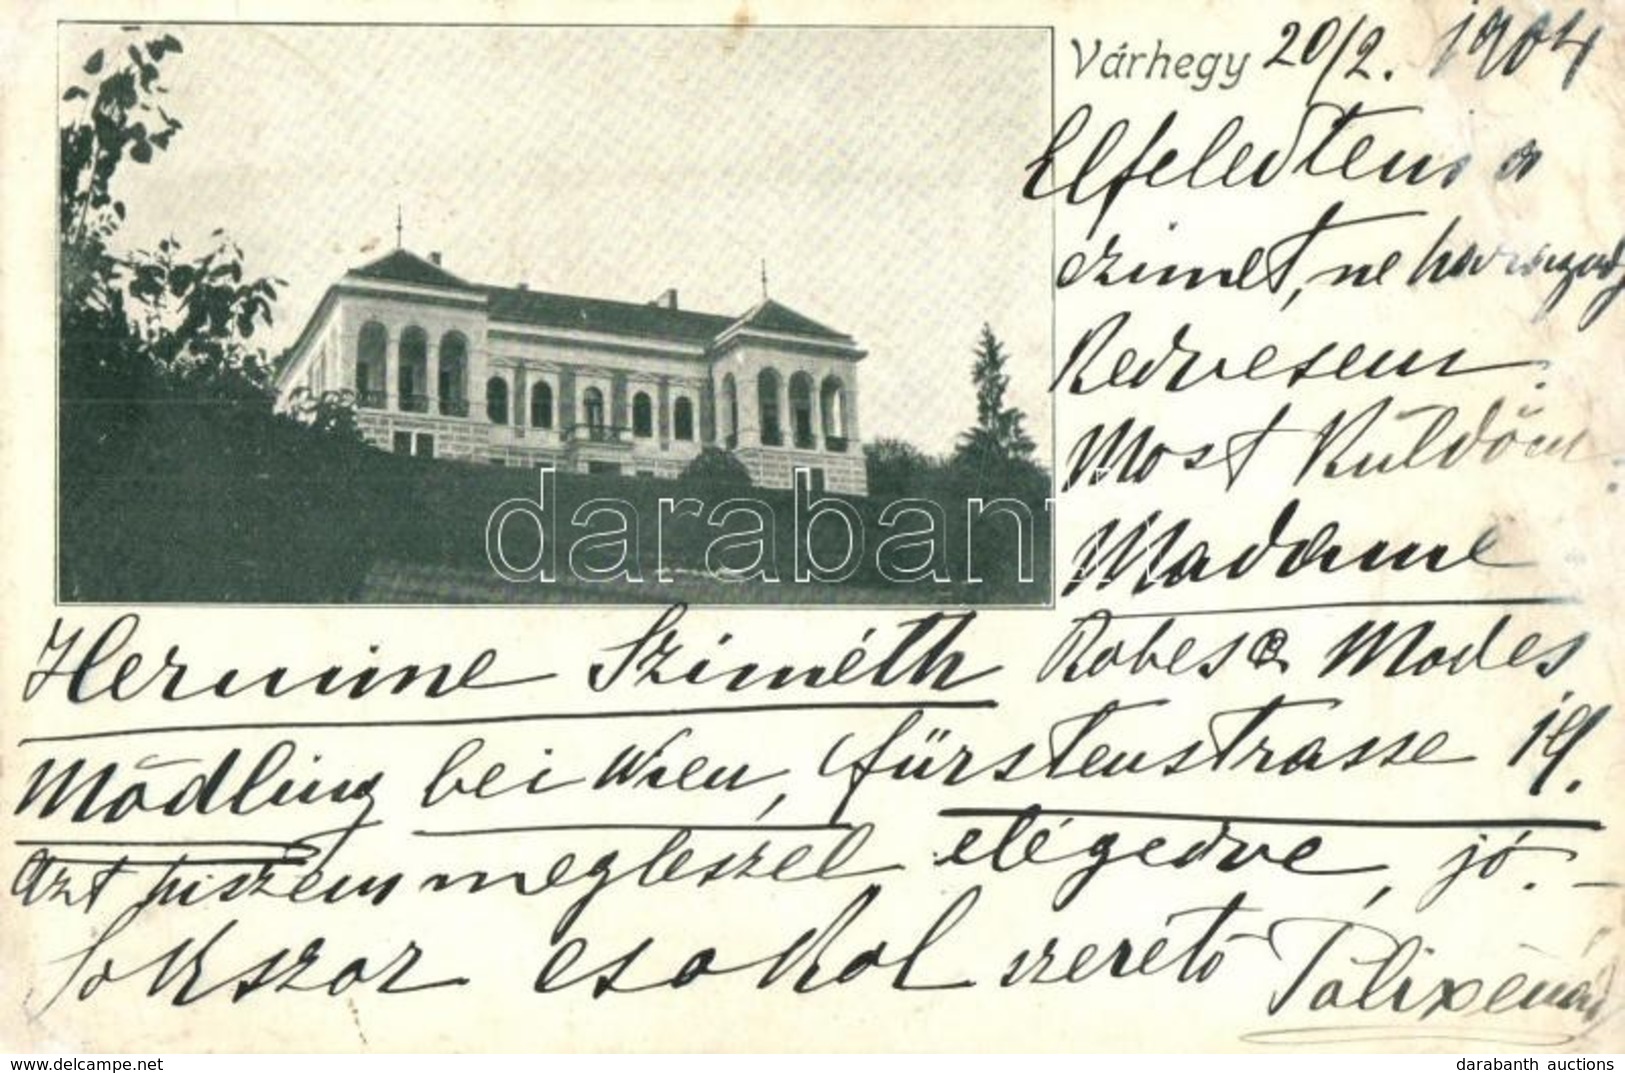 Várhegy 20/2. 1904
Elfeledtem a
czimet, ne haragudj
Kedvesem.
Most Küldöm
Madame
Hermine Sziméth Robes & Modes
Mödling bei Wien, fürstenstrasse 19.
azt hiszem megleszel elégedve, jó. –
Sokszor csokol szerető Polixénád
darabanth
darabanth auctions
http://www.darabanth.com